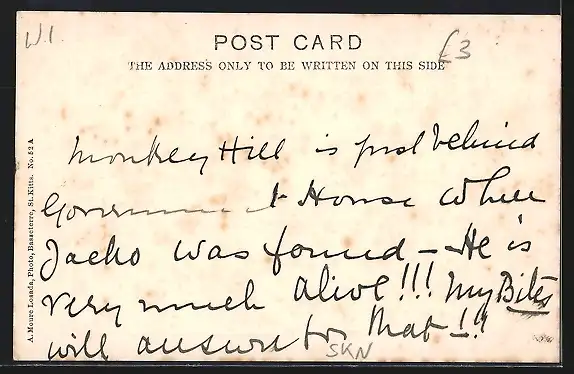 W.I.
£3
POST CARD
THE ADDRESS ONLY TO BE WRITTEN ON THIS SIDE
Monkey Hill is just behind
Government House where
Jacko was found - He is
very much alive!!! My Bites
will answer for that -!!
SKN
A. Moure Losada, Photo, Basseterre, St. Kitts. No. 52 A